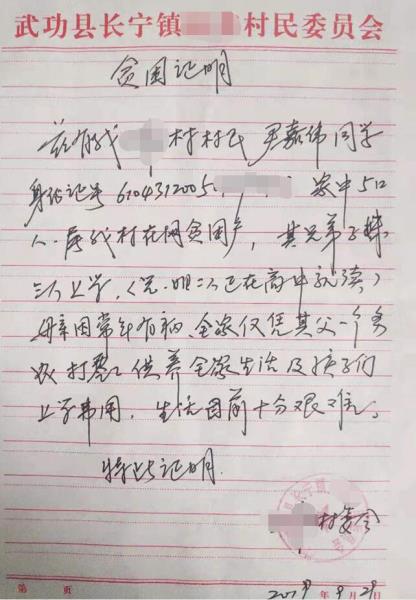 武功县长宁镇 村民委员会
贫困证明
兹有我 村村民 尹嘉伟同学
身份证号 6104312005 家中5口
人.属我村在册贫困户，其兄弟子妹
三人上学，(兄.明二人已在高中就读)
母亲因常年有病，全家仅凭其父一个务
农打零工供养全家生活及孩子们
上学费用，生活目前十分艰难。
特此证明.
县长宁镇
村委会
年9月29日
第 页